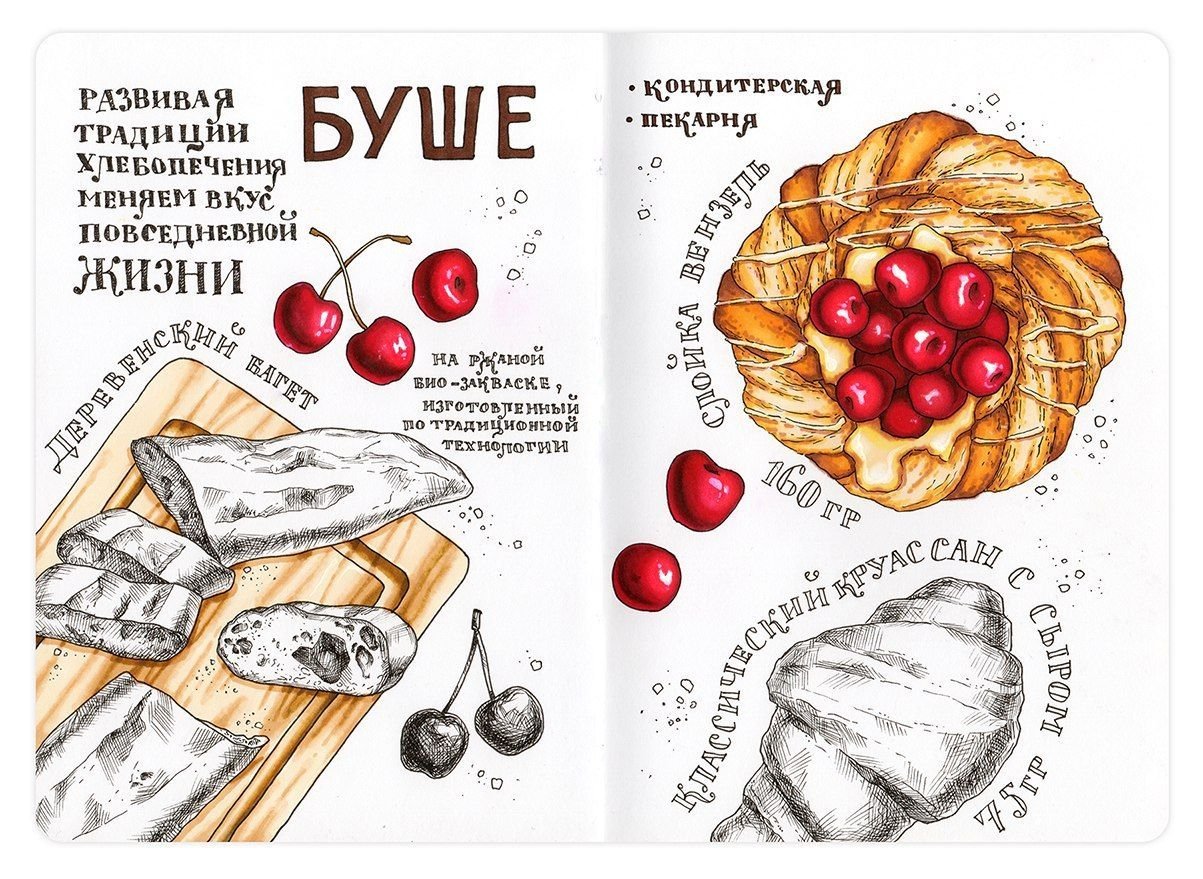 РАЗВИВАЯ
ТРАДИЦИИ
ХЛЕБОПЕЧЕНИЯ
МЕНЯЕМ ВКУС
ПОВСЕДНЕВНОЙ
ЖИЗНИ
БУШЕ
ДЕРЕВЕНСКИЙ БАГЕТ
НА РЖАНОЙ
БИО-ЗАКВАСКЕ,
ИЗГОТОВЛЕННЫЙ
ПО ТРАДИЦИОННОЙ
ТЕХНОЛОГИИ
• КОНДИТЕРСКАЯ
• ПЕКАРНЯ
СЛОЙКА ВЕНЗЕЛЬ
160 ГР
КЛАССИЧЕСКИЙ КРУАССАН С СЫРОМ
75 ГР